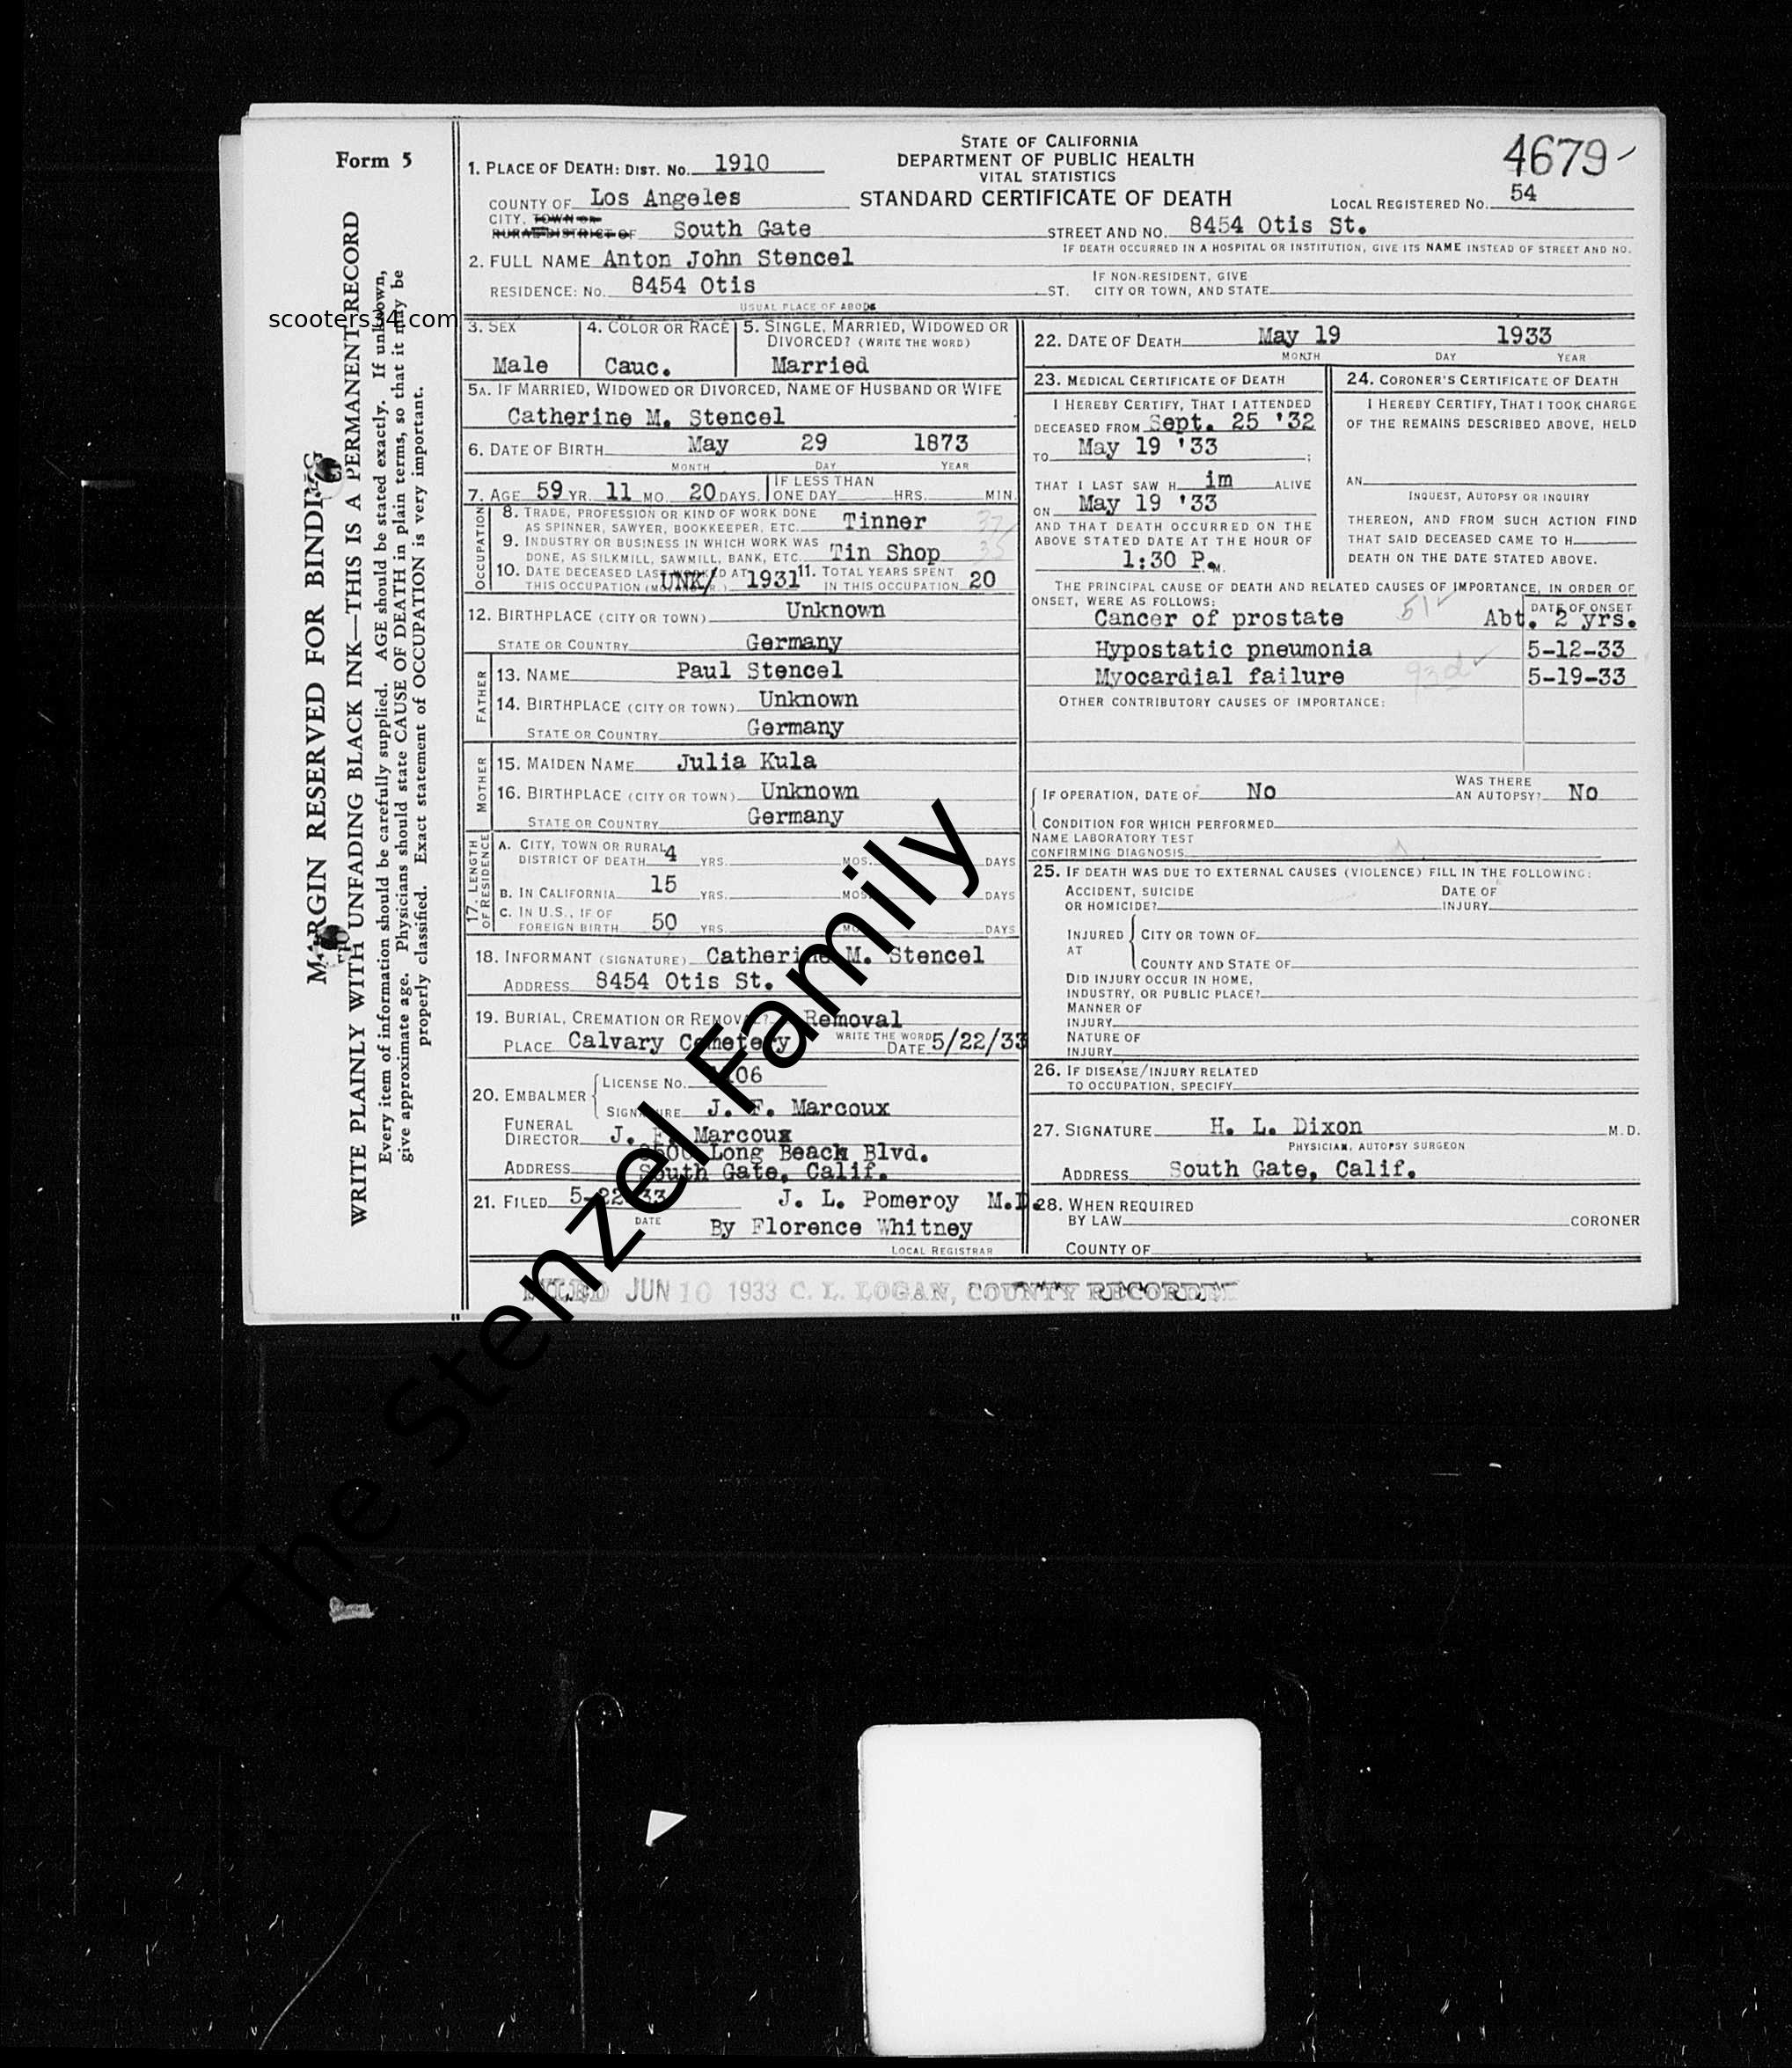 Form 5
MARGIN RESERVED FOR BINDING
WRITE PLAINLY WITH UNFADING BLACK INK—THIS IS A PERMANENT RECORD
Every item of information should be carefully supplied. AGE should be stated exactly. If unknown,
give approximate age. Physicians should state CAUSE OF DEATH in plain terms, so that it may be
properly classified. Exact statement of OCCUPATION is very important.
scooters34.com
STATE OF CALIFORNIA
DEPARTMENT OF PUBLIC HEALTH
VITAL STATISTICS
STANDARD CERTIFICATE OF DEATH
4679
1. PLACE OF DEATH: DIST. No. 1910
LOCAL REGISTERED No. 54
COUNTY OF Los Angeles
CITY, TOWN OR
RURAL DISTRICT OF South Gate
STREET AND NO. 8454 Otis St.
IF DEATH OCCURRED IN A HOSPITAL OR INSTITUTION, GIVE ITS NAME INSTEAD OF STREET AND NO.
2. FULL NAME Anton John Stencel
RESIDENCE: No. 8454 Otis ST.
USUAL PLACE OF ABODE
IF NON-RESIDENT, GIVE
CITY OR TOWN, AND STATE
3. SEX
Male
4. COLOR OR RACE
Cauc.
5. SINGLE, MARRIED, WIDOWED OR
DIVORCED? (WRITE THE WORD)
Married
5A. IF MARRIED, WIDOWED OR DIVORCED, NAME OF HUSBAND OR WIFE
Catherine M. Stencel
6. DATE OF BIRTH May 29 1873
MONTH DAY YEAR
7. AGE 59 YR. 11 MO. 20 DAYS. IF LESS THAN
ONE DAY HRS. MIN.
OCCUPATION
8. TRADE, PROFESSION OR KIND OF WORK DONE
AS SPINNER, SAWYER, BOOKKEEPER, ETC. Tinner
9. INDUSTRY OR BUSINESS IN WHICH WORK WAS
DONE, AS SILKMILL, SAWMILL, BANK, ETC. Tin Shop
10. DATE DECEASED LAST WORKED AT
THIS OCCUPATION UNK/ 1931
11. TOTAL YEARS SPENT
IN THIS OCCUPATION 20
12. BIRTHPLACE (CITY OR TOWN) Unknown
STATE OR COUNTRY Germany
FATHER
13. NAME Paul Stencel
14. BIRTHPLACE (CITY OR TOWN) Unknown
STATE OR COUNTRY Germany
MOTHER
15. MAIDEN NAME Julia Kula
16. BIRTHPLACE (CITY OR TOWN) Unknown
STATE OR COUNTRY Germany
17. LENGTH
OF RESIDENCE
A. CITY, TOWN OR RURAL
DISTRICT OF DEATH 4 YRS. MOS. DAYS
B. IN CALIFORNIA 15 YRS. MOS. DAYS
C. IN U.S., IF OF
FOREIGN BIRTH 50 YRS. MOS. DAYS
18. INFORMANT (SIGNATURE) Catherine M. Stencel
ADDRESS 8454 Otis St.
19. BURIAL, CREMATION OR REMOVAL? Removal
WRITE THE WORD
PLACE Calvary Cemetery DATE 5/22/33
20. EMBALMER
LICENSE No.
SIGNATURE J. F. Marcoux
FUNERAL
DIRECTOR J. F. Marcoux
Long Beach Blvd.
ADDRESS South Gate, Calif.
21. FILED 5-22-33 J. L. Pomeroy M.D.
DATE
By Florence Whitney
LOCAL REGISTRAR
22. DATE OF DEATH May 19 1933
MONTH DAY YEAR
23. MEDICAL CERTIFICATE OF DEATH
I HEREBY CERTIFY, THAT I ATTENDED
DECEASED FROM Sept. 25 '32
TO May 19 '33 ;
THAT I LAST SAW H im ALIVE
ON May 19 '33
AND THAT DEATH OCCURRED ON THE
ABOVE STATED DATE AT THE HOUR OF
1:30 P. M.
24. CORONER'S CERTIFICATE OF DEATH
I HEREBY CERTIFY, THAT I TOOK CHARGE
OF THE REMAINS DESCRIBED ABOVE, HELD
AN
INQUEST, AUTOPSY OR INQUIRY
THEREON, AND FROM SUCH ACTION FIND
THAT SAID DECEASED CAME TO H
DEATH ON THE DATE STATED ABOVE.
THE PRINCIPAL CAUSE OF DEATH AND RELATED CAUSES OF IMPORTANCE, IN ORDER OF
ONSET, WERE AS FOLLOWS:
DATE OF ONSET
Cancer of prostate 51 Abt. 2 yrs.
Hypostatic pneumonia 5-12-33
Myocardial failure 93d 5-19-33
OTHER CONTRIBUTORY CAUSES OF IMPORTANCE:
IF OPERATION, DATE OF No
WAS THERE
AN AUTOPSY? No
CONDITION FOR WHICH PERFORMED
NAME LABORATORY TEST
CONFIRMING DIAGNOSIS
25. IF DEATH WAS DUE TO EXTERNAL CAUSES (VIOLENCE) FILL IN THE FOLLOWING:
ACCIDENT, SUICIDE
OR HOMICIDE?
DATE OF
INJURY
INJURED
AT
CITY OR TOWN OF
COUNTY AND STATE OF
DID INJURY OCCUR IN HOME,
INDUSTRY, OR PUBLIC PLACE?
MANNER OF
INJURY
NATURE OF
INJURY
26. IF DISEASE/INJURY RELATED
TO OCCUPATION, SPECIFY
27. SIGNATURE H. L. Dixon M.D.
PHYSICIAN, AUTOPSY SURGEON
ADDRESS South Gate, Calif.
28. WHEN REQUIRED
BY LAW CORONER
COUNTY OF
FILED JUN 10 1933 C. L. LOGAN, COUNTY RECORDER
The Stenzel Family